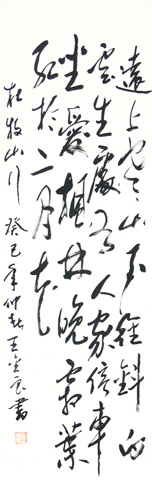 遠上寒山石徑斜白
雲生處有人家停車
坐愛楓林晚霜葉
紅於二月花
杜牧山行 癸巳年仲春王書